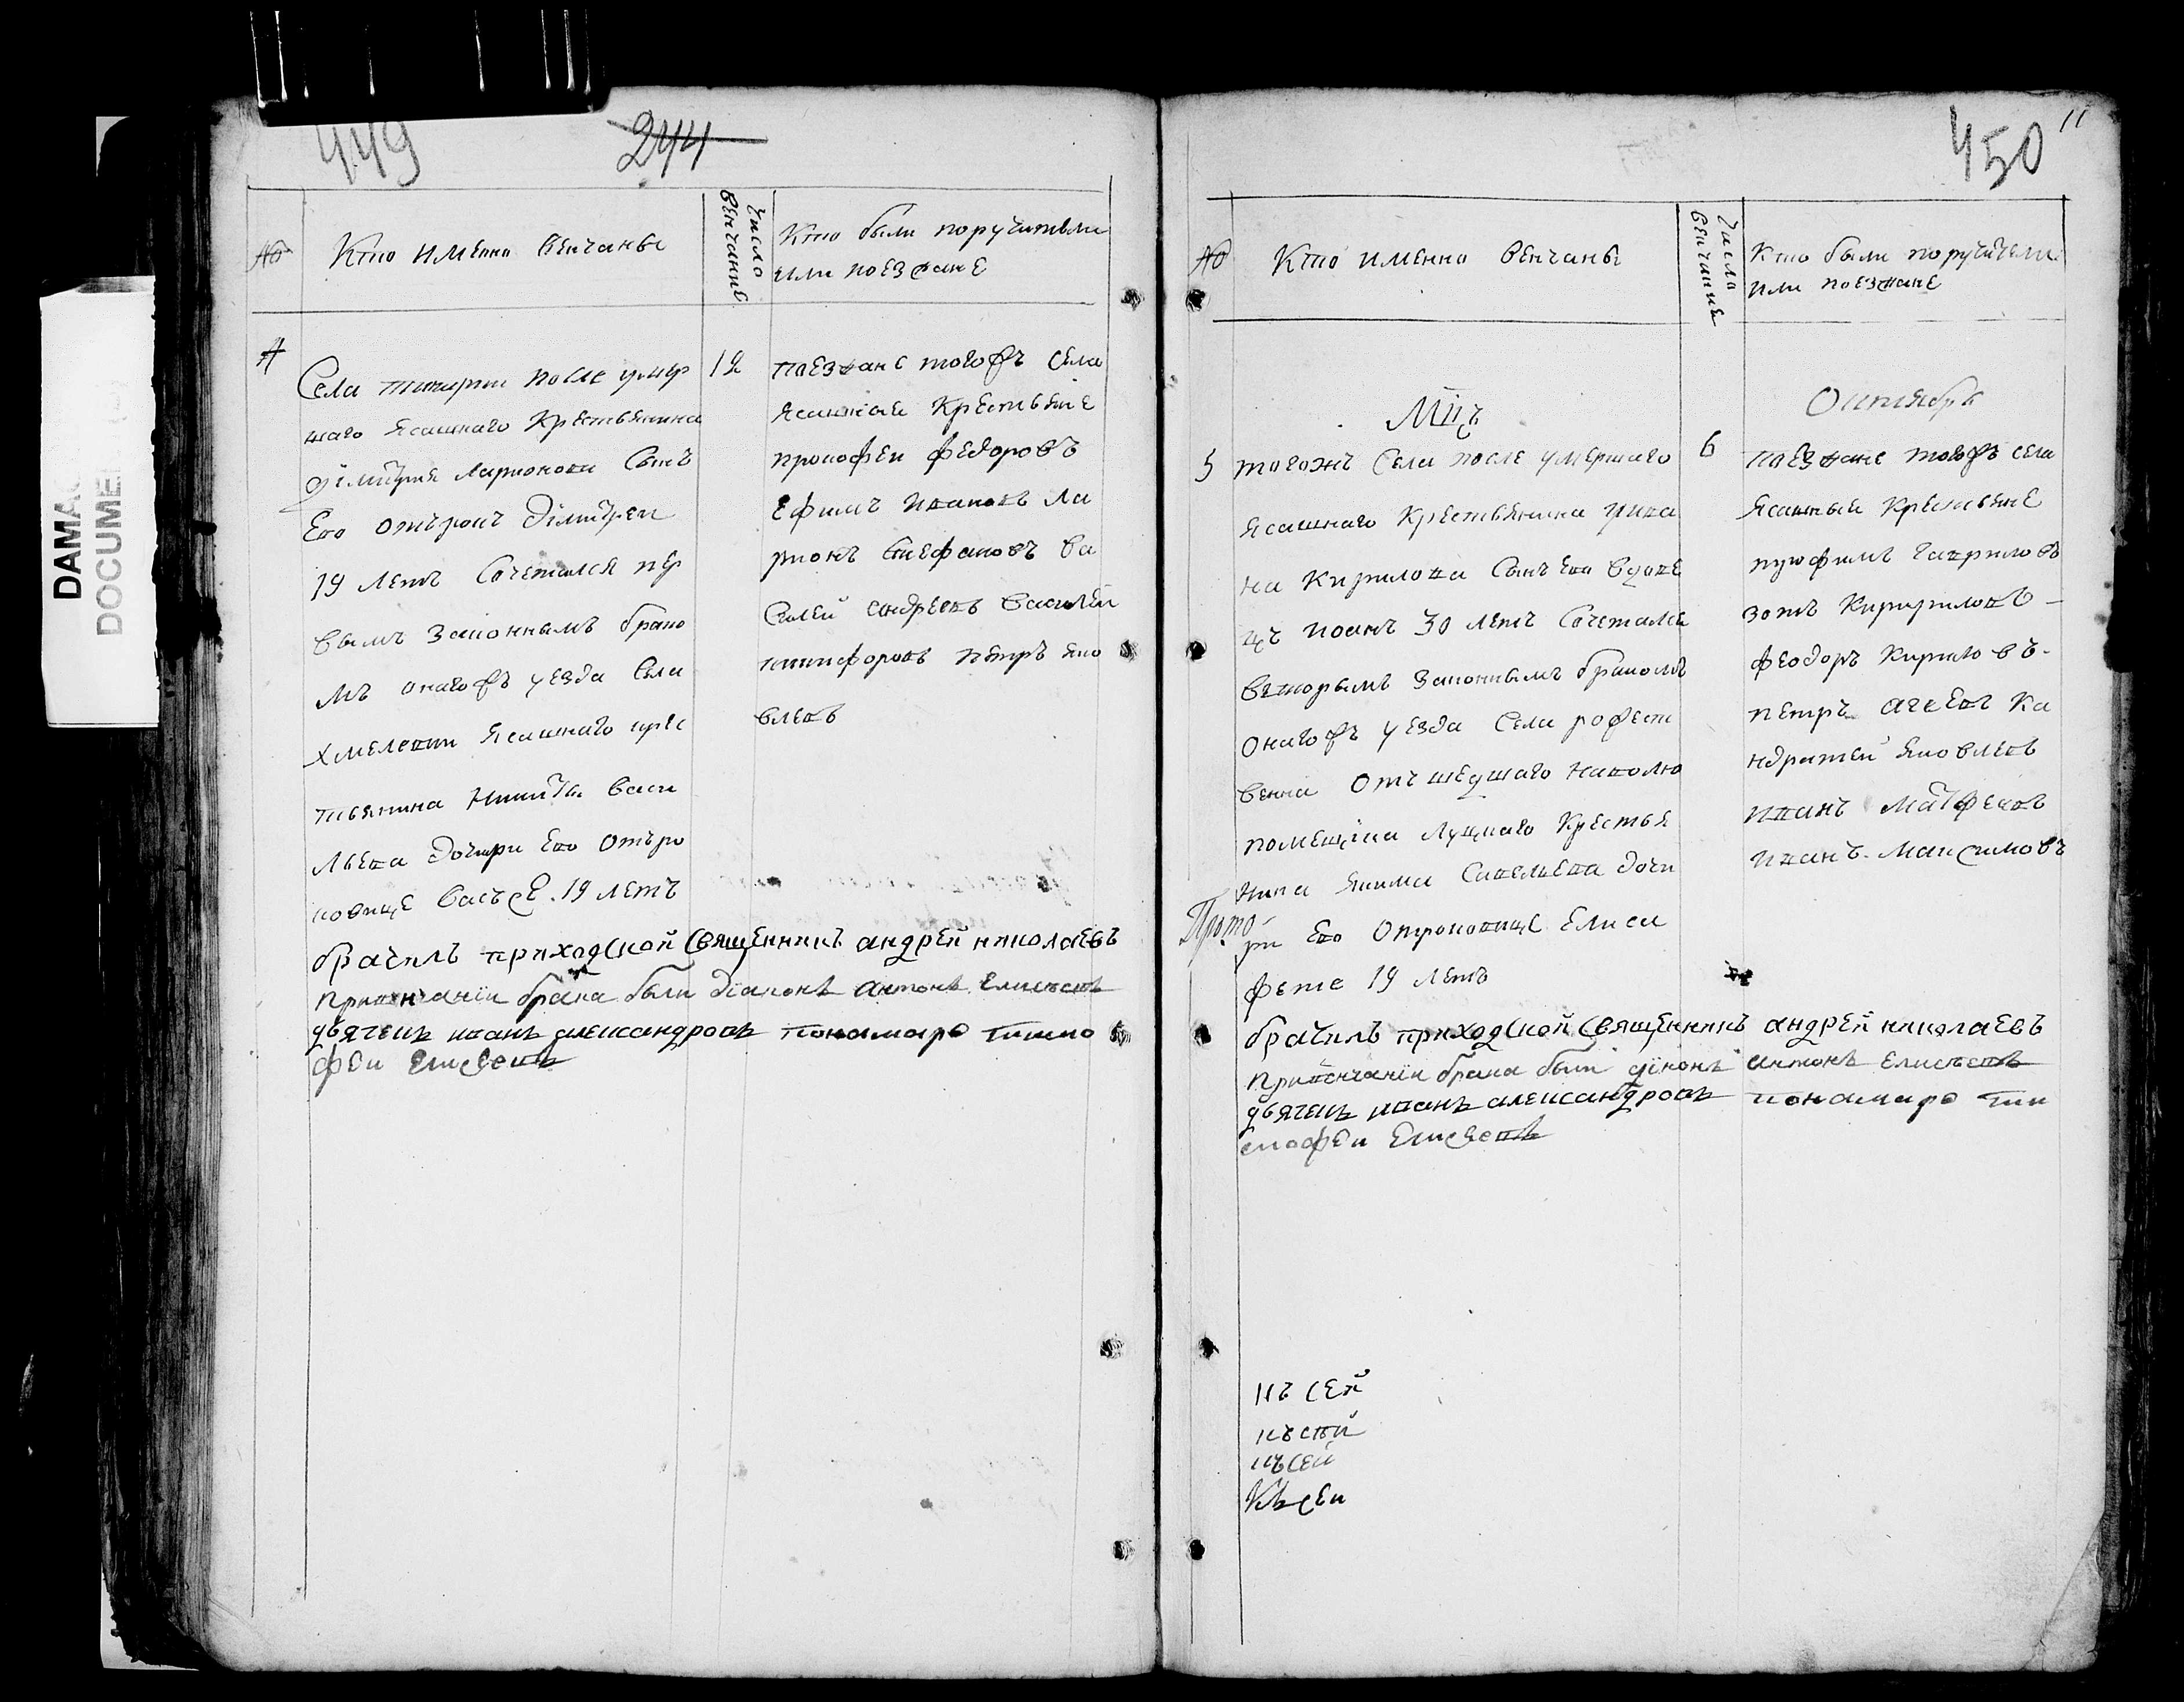 449
244
№
Кто именно венчаны
Число венчание
Кто были поручители
или поезжане
4
Села после умер
шаго ясашнаго крестьянина
Димитрия Ларионова сынъ
ево отърокъ Димитреи
19 летъ сочетался пер
вымъ законнымъ брако
мъ онагожъ уезда села
Хмелевки ясашнаго крес
тьянина Никиты Васи
льева дочери ево отъро
ковице 19 летъ
12
поезжане тогожъ села
ясашные крестьяне
Прокофеи Федоровъ
Ефимъ Ивановъ Ла
рионъ Стефановъ Ва
силей Андреевъ Василей
Никифоровъ Петръ Яко
влевъ
брачилъ приходской священникъ андрей николаевъ
привенчании брака были диаконъ антонъ елисеевъ
дьячекъ иванъ александровъ понамарь тимо
феи елисеевъ
DAMA
DOCUME
11
450
№
Кто именно венчаны
Число венчание
Кто были поручители
или поезжане
Мцъ
Октябрь
5
тогожъ села после умершаго
ясашнаго крестьянина
на Кирилова сынъ ево вдове
цъ Иоанъ 30 летъ сочетался
веторымъ законнымъ бракомъ
онагожъ уезда села рожест
венна отъшедшаго
помещика крестья
нина Якима Савельева доче
ри ево отроковице Елиса
фете 19 летъ
6
поезжане тогожъ села
ясашныи крестьяне
Гавриловъ
Зотъ Киририловъ
Феодоръ Кириловъ
Петръ Агеевъ Ка
ндратеи Яковлевъ
Иванъ Матфеевъ
Иванъ Максимовъ
брачилъ приходской священникъ андрей николаевъ
привенчании брака были диконъ антонъ елисеевъ
дьячекъ иванъ александровъ понамарь тим
мофеи елисеевъ
къ сей
къ сей
къ сей
Къ сеи